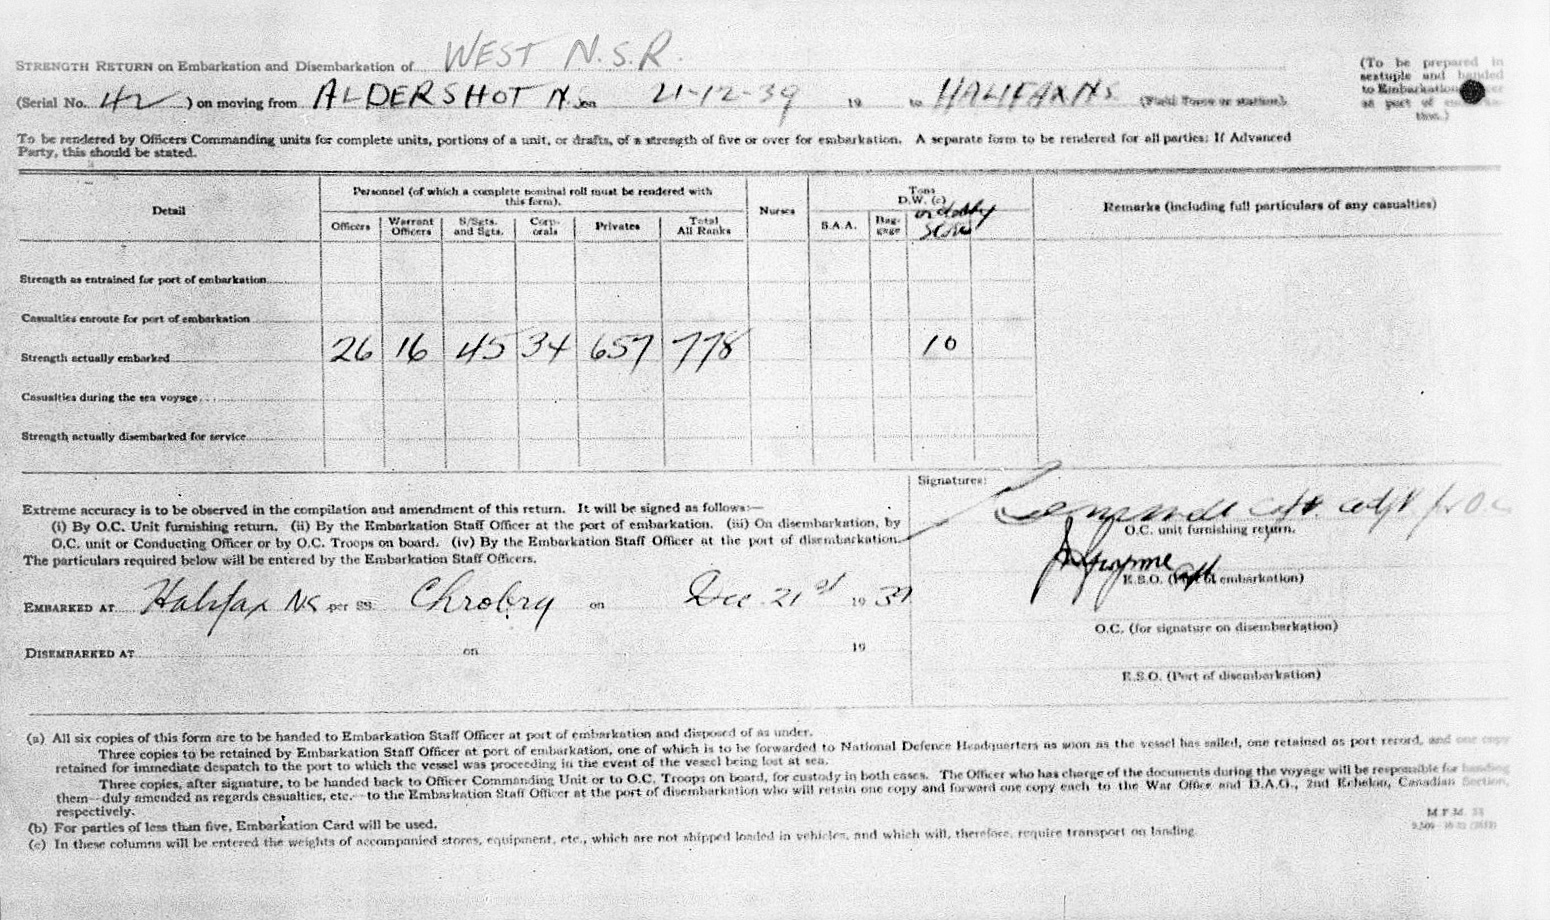 WEST N.S.R.
STRENGTH RETURN on Embarkation and Disembarkation of
(To be prepared in
sextuple and handed
to Embarkation
as port of
tion.)
(Serial No. 42) on moving from ALDERSHOT N.S. on 21-12-39 19 to HALIFAX NS (Field Force or station).
To be rendered by Officers Commanding units for complete units, portions of a unit, or drafts, of a strength of five or over for embarkation. A separate form to be rendered for all parties: If Advanced
Party, this should be stated.
Detail
Personnel (of which a complete nominal roll must be rendered with
this form).
Officers
Warrant
Officers
S/Sgts.
and Sgts.
Corp-
orals
Privates
Total
All Ranks
Nurses
Tons
D.W. (c)
S.A.A.
Bag-
gage
Stores
Remarks (including full particulars of any casualties)
Strength as entrained for port of embarkation
Casualties enroute for port of embarkation
Strength actually embarked 26 16 45 34 657 778 10
Casualties during the sea voyage
Strength actually disembarked for service
Extreme accuracy is to be observed in the compilation and amendment of this return. It will be signed as follows:—
(i) By O.C. Unit furnishing return. (ii) By the Embarkation Staff Officer at the port of embarkation. (iii) On disembarkation, by
O.C. unit or Conducting Officer or by O.C. Troops on board. (iv) By the Embarkation Staff Officer at the port of disembarkation.
The particulars required below will be entered by the Embarkation Staff Officers.
EMBARKED AT Halifax NS per SS. Chrobry on Dec. 21st 19 39
DISEMBARKED AT on 19
Signatures:
Capt. Adjt for O.C.
O.C. unit furnishing return.
Gwynne Capt
E.S.O. (Port of embarkation)
O.C. (for signature on disembarkation)
E.S.O. (Port of disembarkation)
(a) All six copies of this form are to be handed to Embarkation Staff Officer at port of embarkation and disposed of as under.
Three copies to be retained by Embarkation Staff Officer at port of embarkation, one of which is to be forwarded to National Defence Headquarters as soon as the vessel has sailed, one retained as port record, and one copy
retained for immediate despatch to the port to which the vessel was proceeding in the event of the vessel being lost at sea.
Three copies, after signature, to be handed back to Officer Commanding Unit or to O.C. Troops on board, for custody in both cases. The Officer who has charge of the documents during the voyage will be responsible for handing
them—duly amended as regards casualties, etc.—to the Embarkation Staff Officer at the port of disembarkation who will retain one copy and forward one copy each to the War Office and D.A.G., 2nd Echelon, Canadian Section,
respectively.
(b) For parties of less than five, Embarkation Card will be used.
(c) In these columns will be entered the weights of accompanied stores, equipment, etc., which are not shipped loaded in vehicles, and which will, therefore, require transport on landing.
M.F.M.